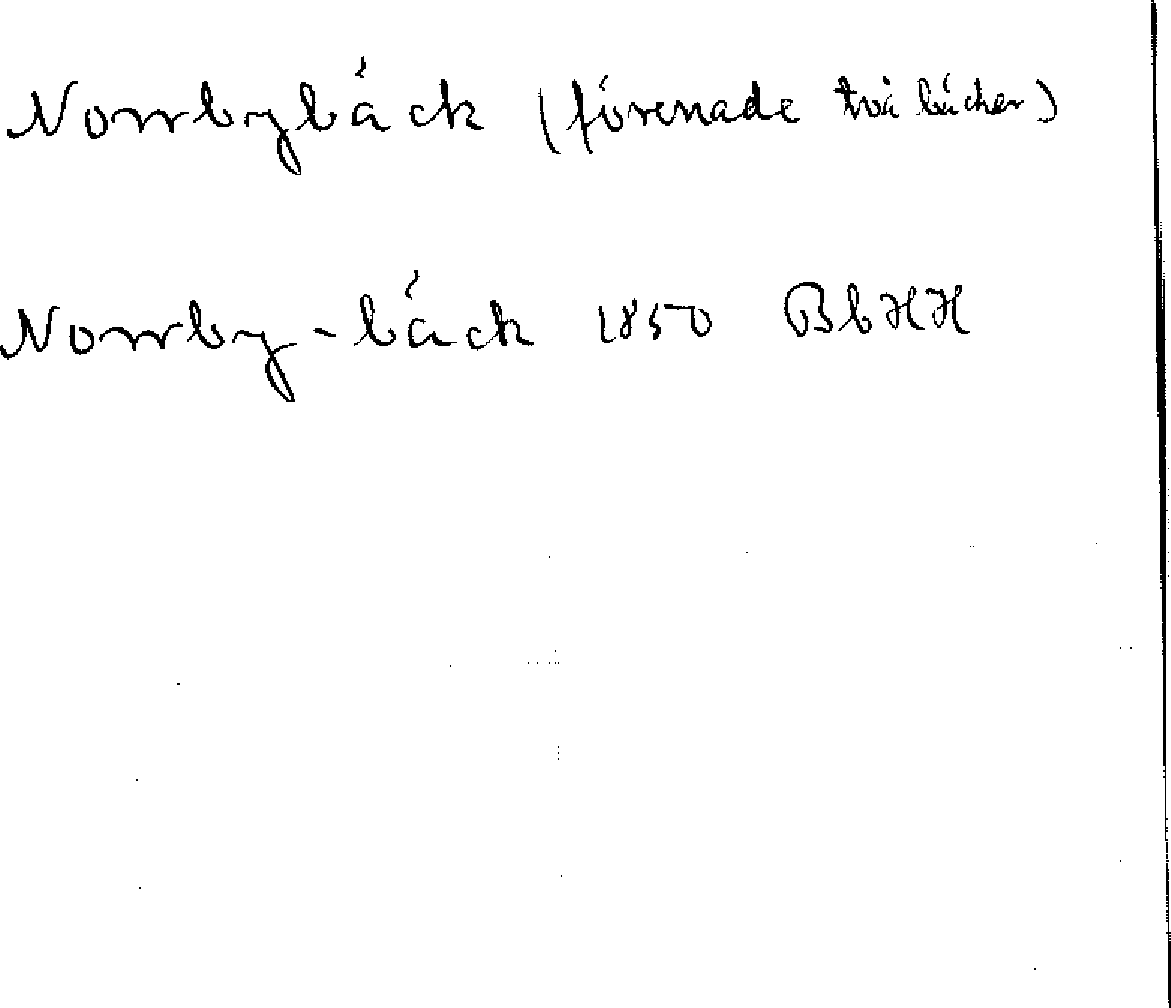 Norrbybäck (förenade två bäckar)
Norrby-bäck 1850 BbHH